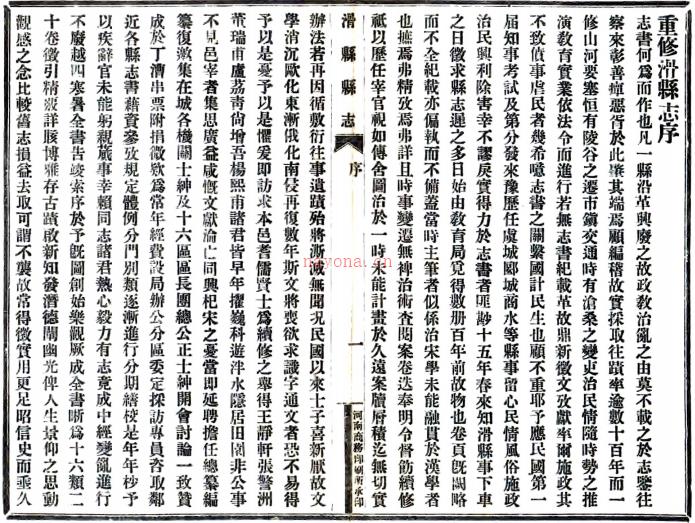 重修滑縣志序
志書何為而作也凡一縣沿革興廢之故政教治亂之由莫不載之於志鑒往
察來彰善癉惡胥於此肇其端焉顧編稽故實採取往蹟率逾數十百年而一
修山河要塞恒有陵谷之遷市鎮交通時有滄桑之變吏治民情隨時勢之推
演教育實業依法令而進行若無志書紀載革故鼎新徵文攷獻率爾施政其
不致僨事虐民者幾希噫志書之關繫國計民生也顧不重耶予應民國第一
屆知事考試及第分發來豫歷任虞城郾城商水等縣事留心民情風俗施政
治民興利除害幸不謬戾實得力於志書者匪尠十五年春來知滑縣事下車
之日徵求縣志遲之多日始由教育局覓得數册百年前故物也卷頁既闕略
而不全紀載亦偏執而不備蓋當時主筆者似係治宋學未能融貫於漢學者
也摭焉弗精攷焉弗詳且時事變遷無裨治術查閱案卷迭奉明令督飭續修
祇以歷任宰官視如傳舍圖治於一時未能計畫於久遠案牘層積迄無切實
滑縣縣志 序 一 河南商務印刷所承印
辦法若再因循敷衍往事遺蹟殆將漸滅無聞况民國以來士子喜新厭故文
學消沉歐化東漸俄化南侵再復數年斯文將喪欲求識字通文者恐不易得
予以是憂予以是懼爰即訪求本邑耆儒賢士為續修之舉得王靜軒張警洲
董瑞甫盧荔青尚增吾楊熙甫諸君皆早年擢巍科遊泮水隱居田園非公事
不見邑宰者集思廣益咸慨文獻淪亡同興杞宋之憂當即延聘擔任總纂編
纂復邀集在城各機關士紳及十六區區長團總公正士紳開會討論一致贊
成於丁漕串票附捐徵欵為當年經費設局辦公分區委定採訪專員咨取鄰
近各縣志書藉資參攷規定體例分門別類逐漸進行分期繕校是年年杪予
以疾辭官未能躬親厥事幸賴同志諸君熱心毅力有志竟成中經變亂進行
不廢越四寒暑全書告竣索序於予既圖創始樂觀厥成全書晰為十六類二
十卷徵引精詳賅博雅存古蹟啟新知發潛德闡幽光俾人生景仰之思動
觀感之念比較舊志損益去取可謂不襲故常得徵實用更足昭信史而垂久
nayona.cn